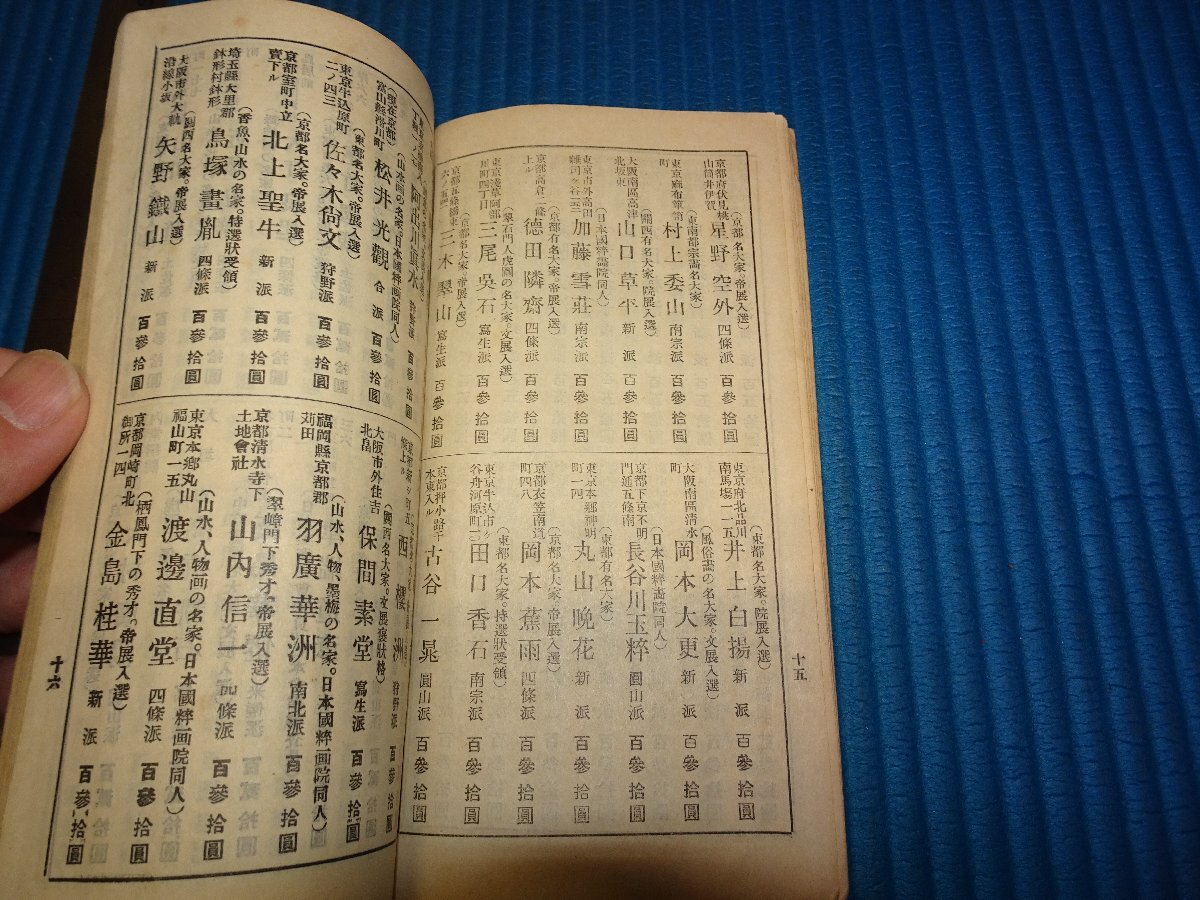 十五
京都府伏見桃山筒井伊賀
(京都名大家。帝展入選)
星野空外 四條派 百參拾圓
東京麻布簞笥町
(東南都宗畵名大家)
村上委山 南宗派 百參拾圓
大阪南區高津北坂東
(關西有名大家。院展入選)
山口草平 新派 百參拾圓
東京市外高田雜司ヶ谷
(日本國粹畵院同人)
加藤雪莊 南宗派 百參拾圓
京都高倉二條上ル
(京都有名大家。帝展入選)
德田隣齋 四條派 百參拾圓
東京淺草阿部川町四丁目
(翠石門人虎圖の名大家。文展入選)
三尾吳石 寫生派 百參拾圓
(京都名大家。帝展入選)
三木翠山 寫生派 百參拾圓
東京府北品川南馬場一一五
(東都名大家、院展入選)
井上白揚 新派 百參拾圓
大阪南區淸水町
(風俗畵の名大家。文展入選)
岡本大更 新派 百參拾圓
京都下京不明門通五條南
(日本國粹畵院同人)
長谷川玉粹 圓山派 百參拾圓
東京本鄉神明町一一四
(東都有名大家)
丸山晚花 新派 百參拾圓
京都衣笠南道町四八
(京都名大家、帝展入選)
岡本蕉雨 四條派 百參拾圓
東京牛込市ヶ谷舟河原町一
(東都名大家。特選狀受領)
田口香石 南宗派 百參拾圓
京都押小路千本東入
古谷一晁 圓山派 百參拾圓
(山水画の名家。日本國粹画院同人)
(現在京都)
富山縣滑川町
松井光觀 合派 百參拾圓
東京牛込原町二ノ四三
(東都名大家。帝展入選)
佐々木尙文 狩野派 百參拾圓
京都室町中立賣下ル
(京都名大家。帝展入選)
北上聖牛 新派 百參拾圓
埼玉縣大里郡鉢形村鉢形
(香魚、山水の名家。特選狀受領)
鳥塚畫胤 四條派 百參拾圓
大阪市外大軌沿線小坂
(關西名大家。帝展入選)
矢野鐵山 新派 百參拾圓
西櫻洲 狩野派 百參拾圓
大阪市外住吉北畠
(關西名大家。文展褒狀格)
保間素堂 寫生派 百參拾圓
福岡縣京都郡苅田
(山水、人物、墨梅の名家。日本國粹画院同人)
羽廣華洲 南北派 百參拾圓
京都淸水寺下土地會社
(翠嶂門下秀才。帝展入選)
山內信一 四條派 百參拾圓
東京本鄉丸山福山町一五
(山水、人物画の名家。日本國粹画院同人)
渡邊直堂 四條派 百參拾圓
京都岡崎町北御所一四
(栖鳳門下の秀才。帝展入選)
金島桂華 新派 百參拾圓
十六